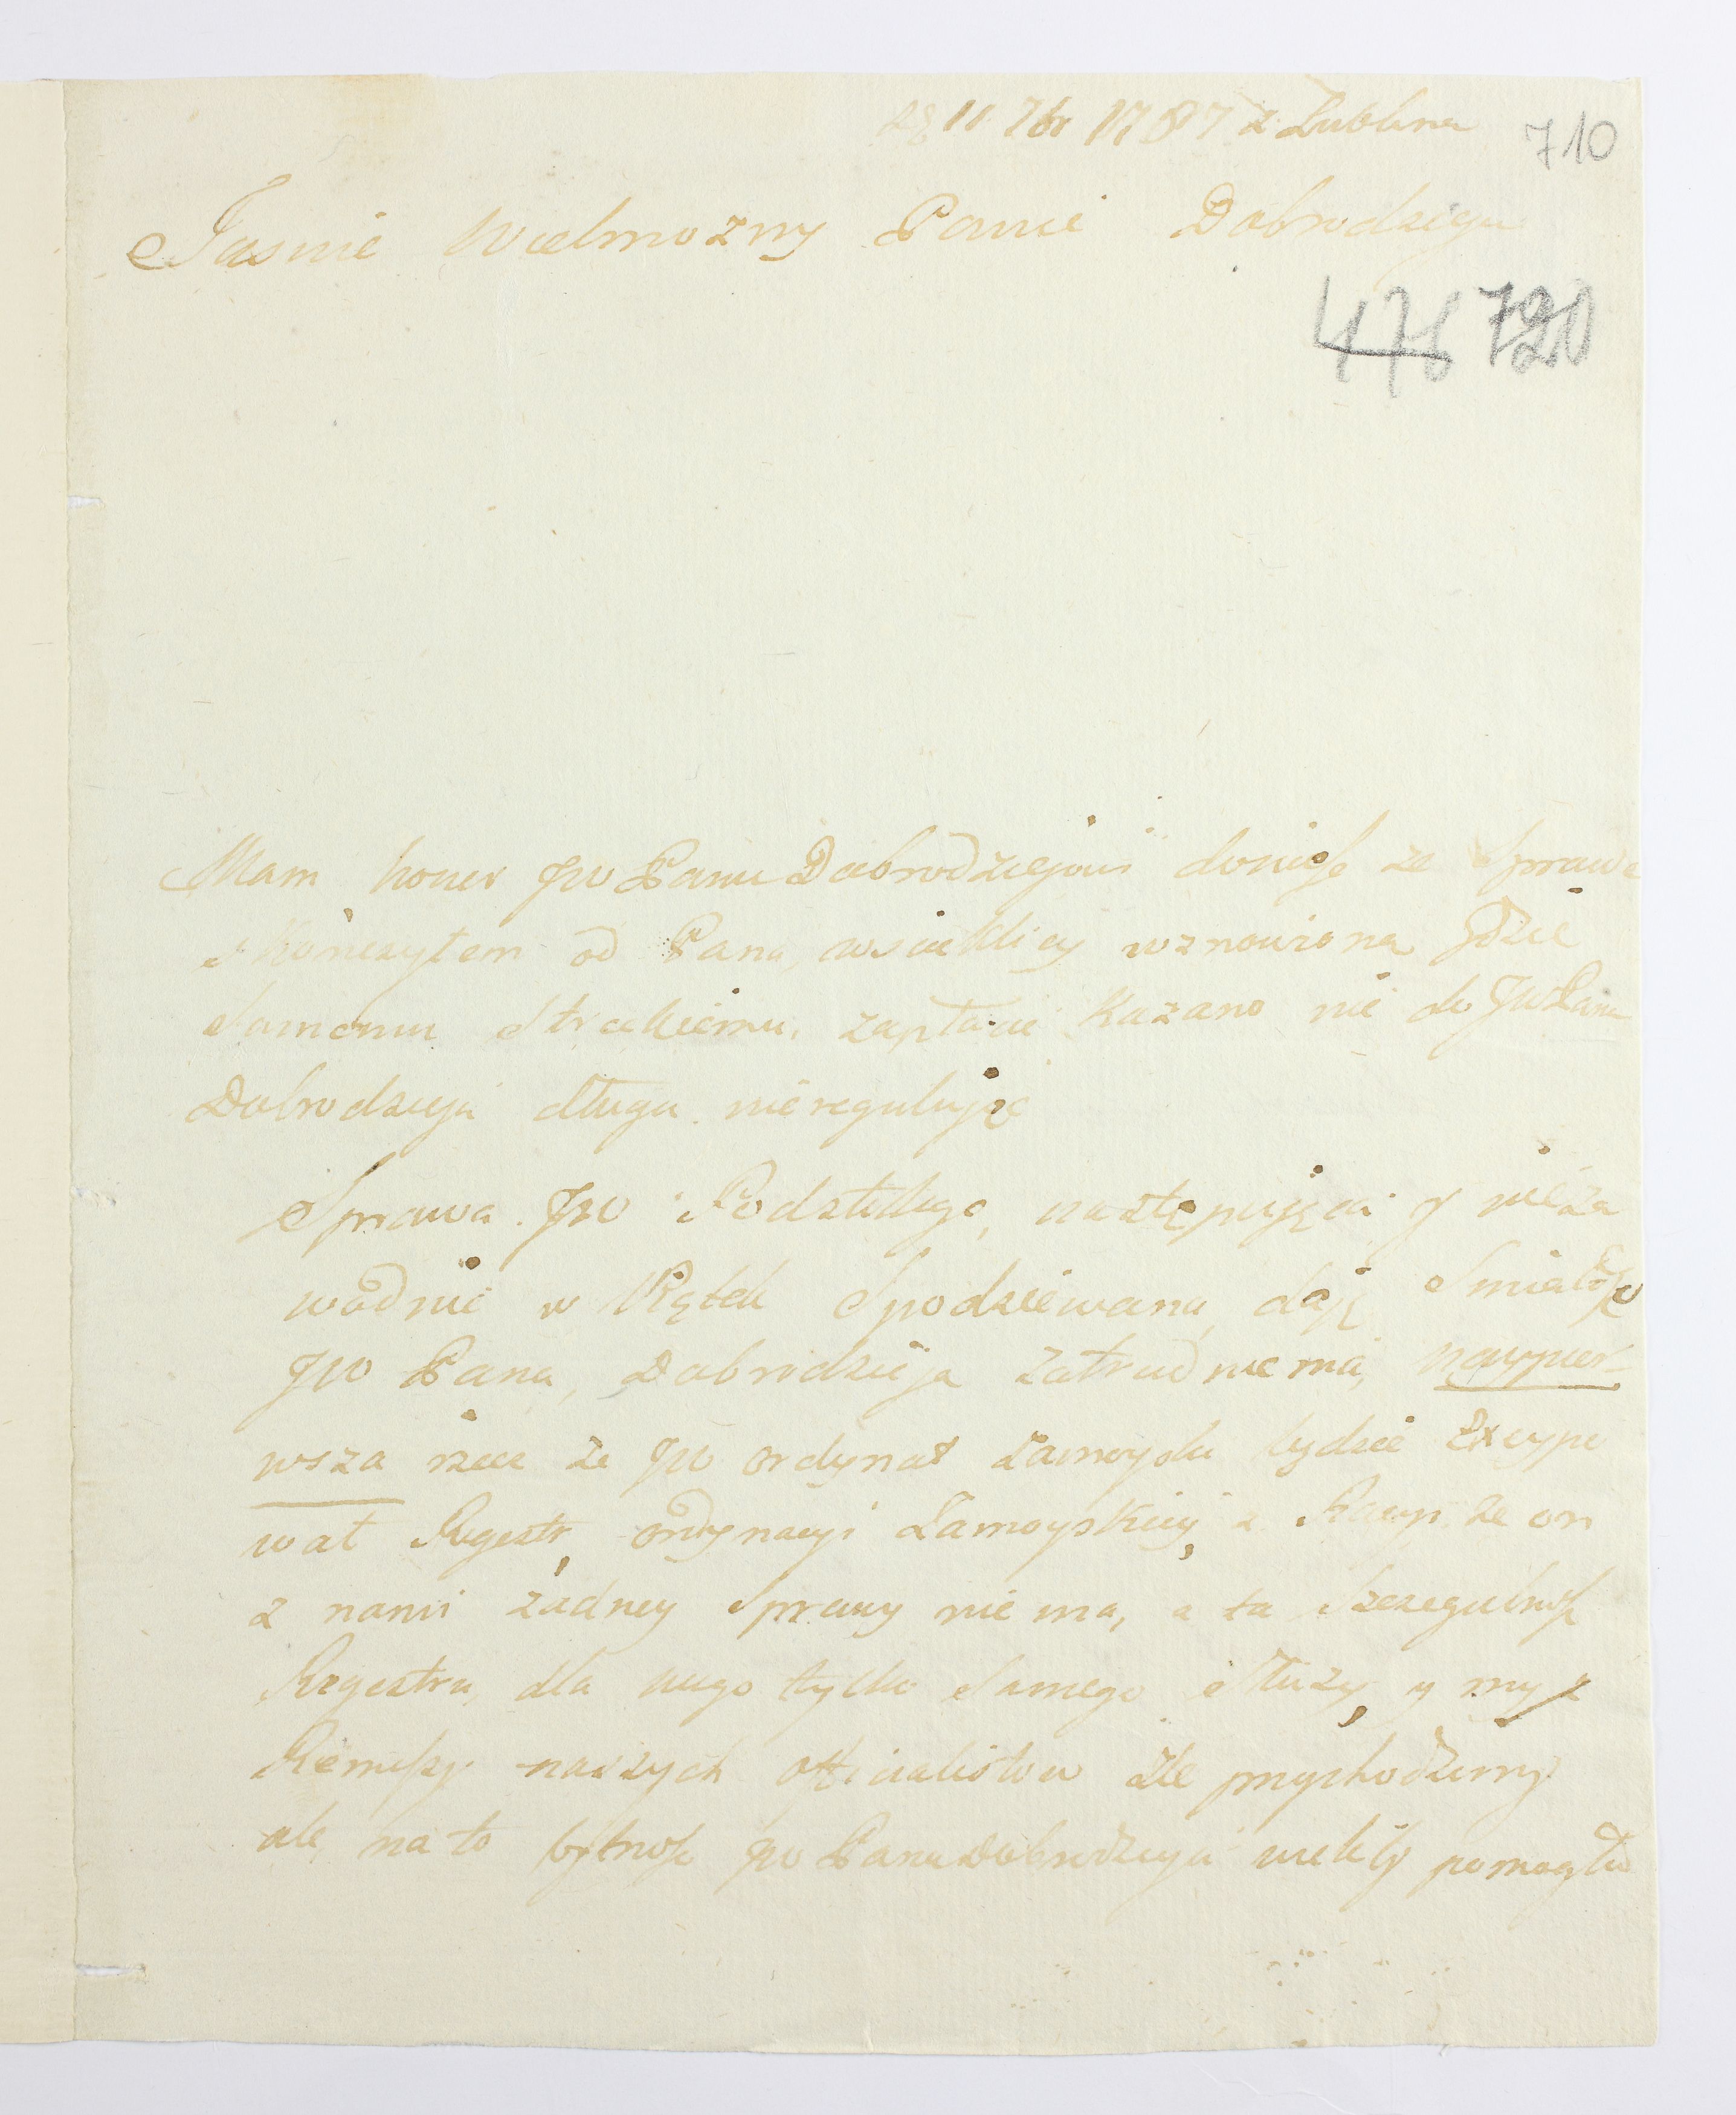 11 7br 1787 z Lublina
710
Jasnie Wielmozny Panie Dobrodzieju
476 720
Mam honor JW Panu Dobrodziejowi doniesc ze Sprawe
skonczytem od Pana, wscieklicy wznowiona gdzie
Samemu zaptacic kazano nic do JW Pana
Dobrodzieja długu nieregulując
Sprawa JW następująca y nieza
wodnie w Piątek Spodziewana, dają Smiałosc
JW Pana, Dobrodzieja zatrudnienia, naypier-
wsza rzecz ze JW ordynat Zamoyski będzie Excypo
wał Regestr ordynacyi Zamoyskiey z Racyi ze on
z nami żadney Sprawy nie ma, a ta Szczegulnosc
Regestru, dla niego tylko Samego Służy, y my z
Remissy naszych officialistow źle przychodzimy
ale, na to bytnosc JW Pana Dobrodzieja wiele by pomogła